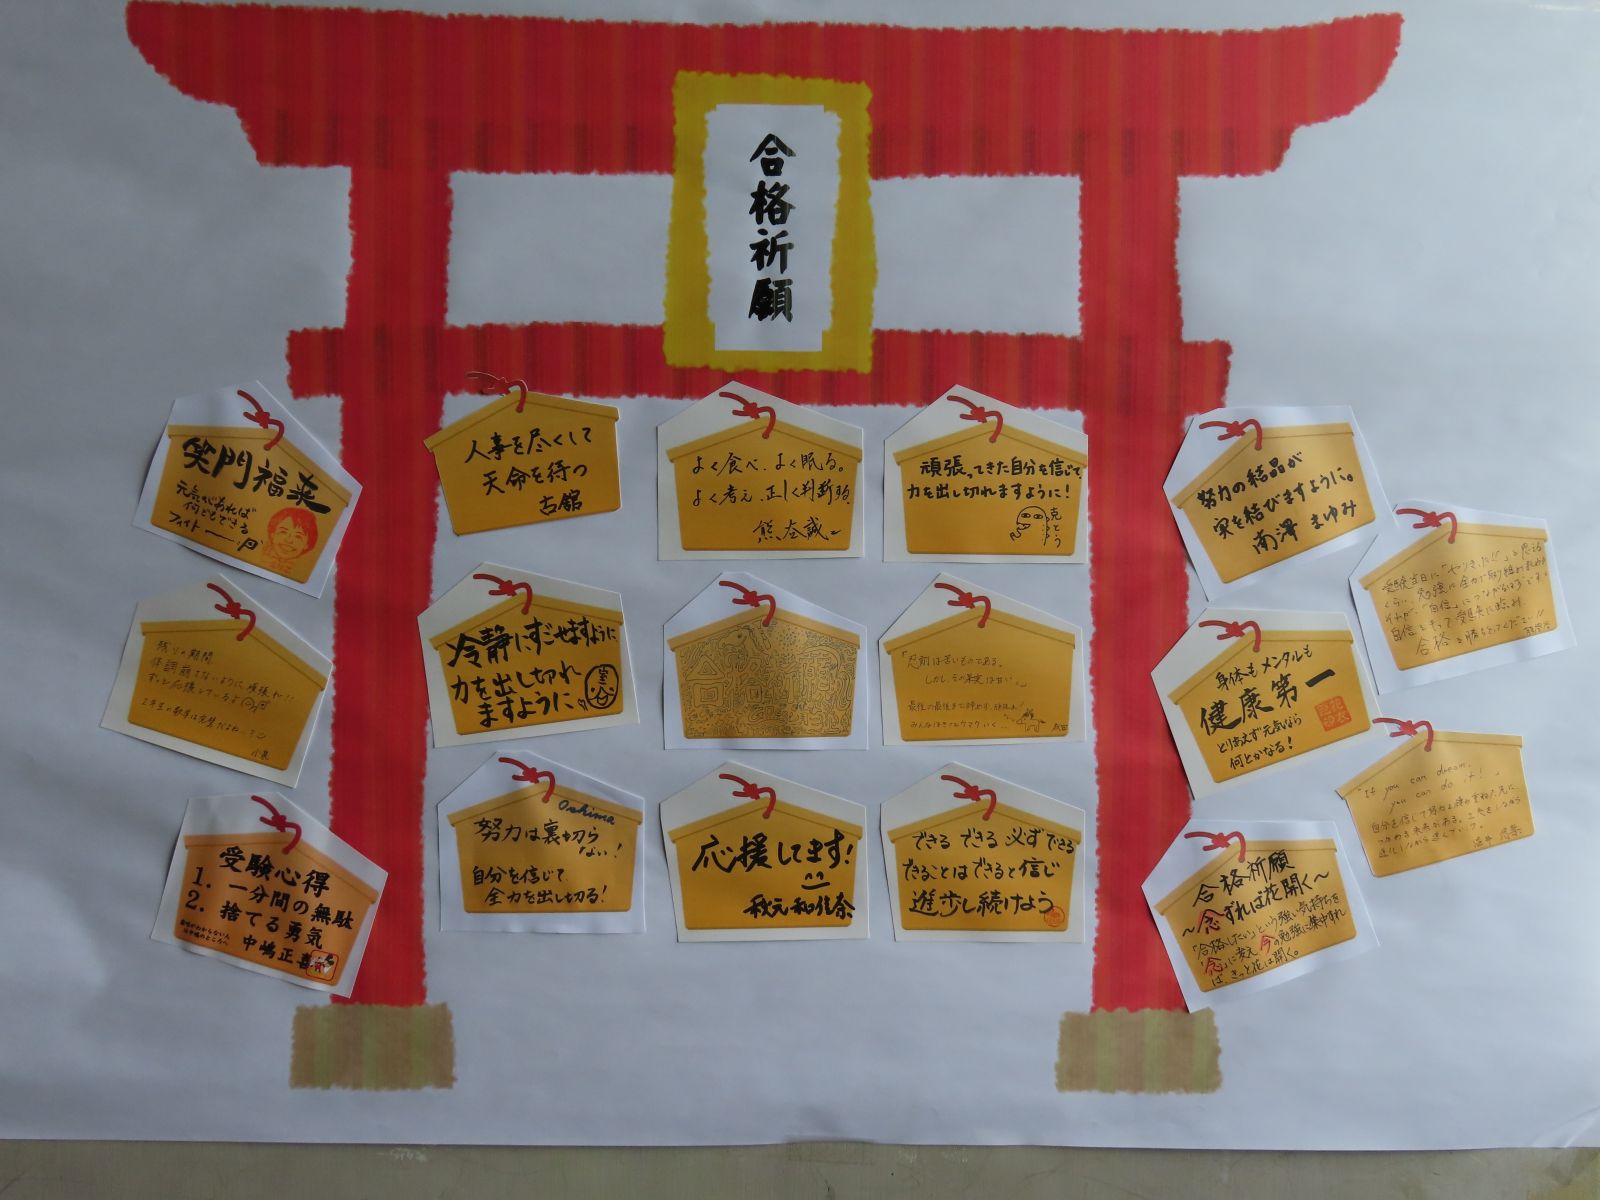 合格祈願
笑門福来
元気があれば
何でもできる
ファイトー
人事を尽くして
天命を待つ
古舘
よく食べ、よく眠る。
よく考え、正しく判断
頑張ってきた自分を信じて
力を出し切れますように!
努力の結晶が
実を結びますように。
南澤 まゆみ
受験当日に「やりきった!!」と思う
くらい、勉強に全力で取り組め
自信をもって受験に臨み
合格を勝ちとってください!!
残りの期間
体調崩さないように頑張れ!!
ずっと応援しているよ
冷静にすごせますように
力を出し切れ
ますように
合格
しかし、その果実は甘い。」
身体もメンタルも
健康第一
とりあえず元気なら
何とかなる!
"If you can dream,
you can do it!"
受験心得
1. 一分間の無駄
2. 捨てる勇気
中嶋正喜
Oshima
努力は裏切ら
ない!
自分を信じて、
全力を出し切る!
応援してます!
秋元和佳奈
できる できる 必ずできる
できることはできると信じ
進歩し続けよう
合格祈願
~念ずれば花開く~
「合格したい」という強い気持ちを
「念」に考え 今の勉強に集中すれ
ば、きっと花は開く。